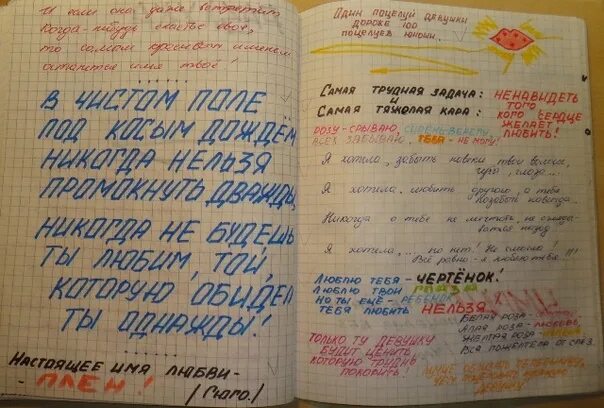 И если она даже встретит
Когда-нибудь счастье своё,
то самым красивым именем
останется имя твоё!
В ЧИСТОМ ПОЛЕ
ПОД КОСЫМ ДОЖДЁМ
НИКОГДА НЕЛЬЗЯ
ПРОМОКНУТЬ ДВАЖДЫ,
НИКОГДА НЕ БУДЕШЬ
ТЫ ЛЮБИМ ТОЙ,
КОТОРУЮ ОБИДЕЛ
ТЫ ОДНАЖДЫ!
НАСТОЯЩЕЕ ИМЯ ЛЮБВИ-
ПЛЕН!
/Гюго./
ОДИН ПОЦЕЛУЙ ДЕВУШКИ
ДОРОЖЕ 100
ПОЦЕЛУЕВ ЮНОШИ.
САМАЯ ТРУДНАЯ ЗАДАЧА: НЕНАВИДЕТЬ
И ТОГО
САМАЯ ТЯЖОЛАЯ КАРА: КОГО СЕРДЦЕ
ЖЕЛАЕТ
ЛЮБИТЬ!
РОЗУ-СРЫВАЮ,
ВСЕХ ЗАБЫВАЮ, ТЕБЯ - НЕ МОГУ!
Я хотела, забыть навеки твои волосы,
глаза...
Я хотела, любить другого, а тебя
позабыть навсегда...
Никогда о тебе не мечтать, не
назад
Я хотела, ... но нет! Не смогла!
Всё равно - я люблю тебя...!!!
ЛЮБЛЮ ТЕБЯ - ЧЕРТЁНОК!
ЛЮБЛЮ ТВОИ ГЛАЗА
НО ТЫ ЕЩЁ - РЕБЁНОК
ТЕБЯ ЛЮБИТЬ НЕЛЬЗЯ
БЕЛАЯ РОЗА-
АЛАЯ РОЗА - ЛЮБОВЬ,
ЖЕЛТАЯ РОЗА-
ВСЯ ПОЖЕЛТЕЛА ОТ СЛЁЗ.
ТОЛЬКО ТУ ДЕВУШКУ
БУДУТ ЦЕНИТЬ
КОТОРУЮ ТРУДНО
ПОКОРИТЬ!